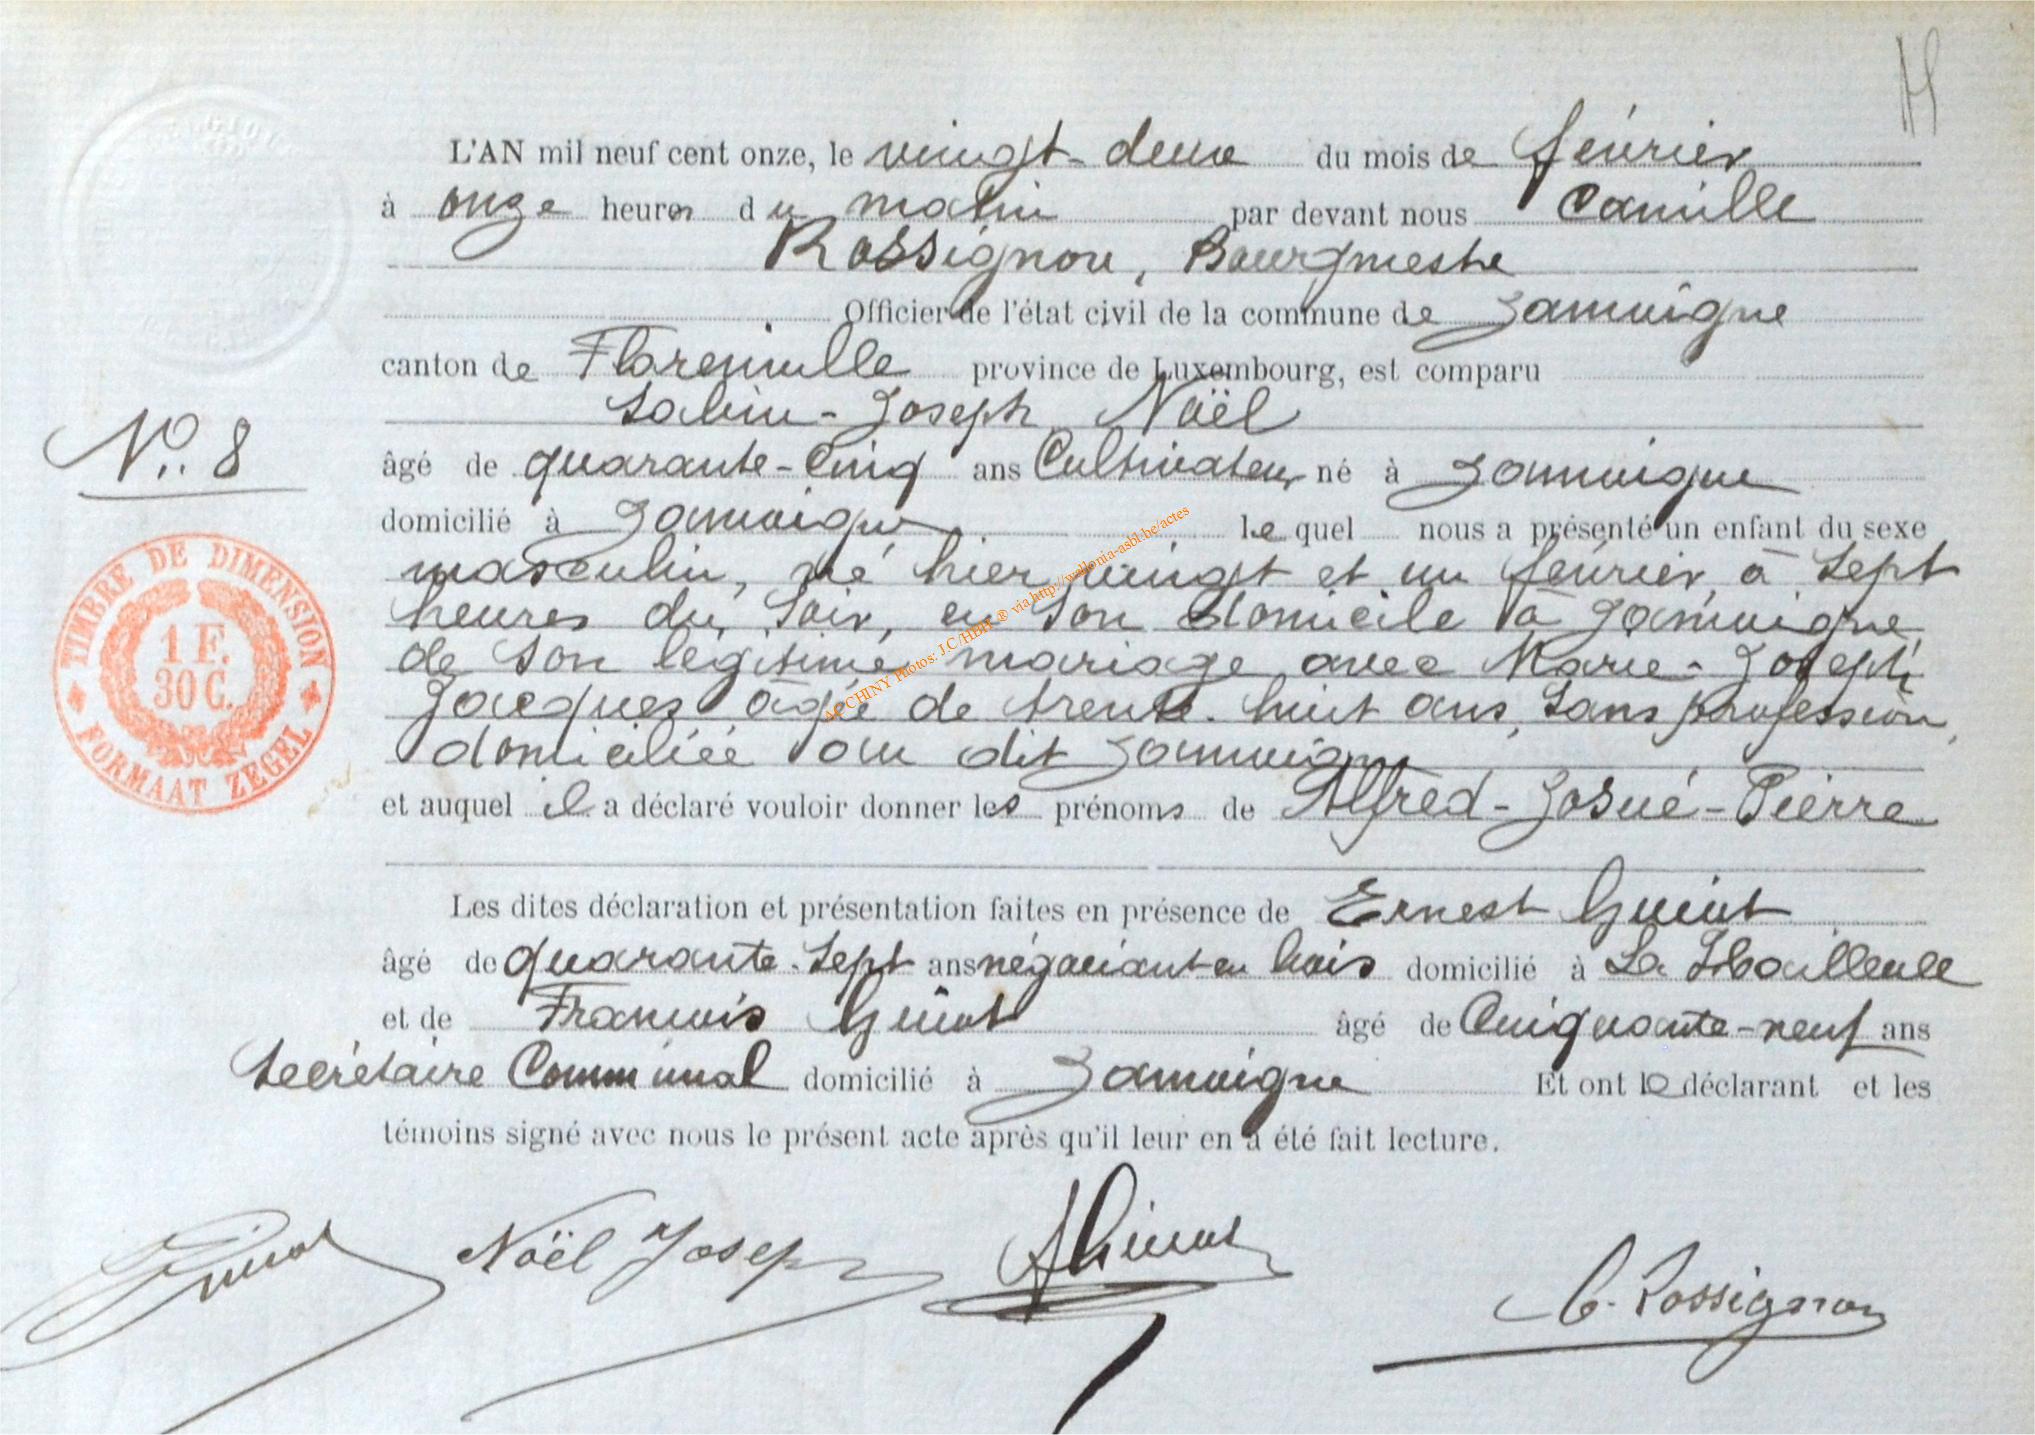 L'AN mil neuf cent onze, le vingt-deux du mois de février
à onze heures du matin par devant nous Camille
Rossignon, Bourgmestre
Officier de l'état civil de la commune de Jamoigne
canton de Florenville province de Luxembourg, est comparu
Sabin-Joseph Noël
N° 8
âgé de quarante-cinq ans Cultivateur né à Jamoigne
domicilié à Jamoigne lequel nous a présenté un enfant du sexe
masculin, né hier vingt et un février à sept
heures du soir, en son domicile à Jamoigne,
de son légitime mariage avec Marie-Joseph
Jacques âgé de trente-huit ans, sans profession,
domiciliée au dit Jamoigne
et auquel il a déclaré vouloir donner les prénoms de Alfred-Josué-Pierre
TIMBRE DE DIMENSION
1 F.
30 C.
FORMAAT ZEGEL
Les dites déclaration et présentation faites en présence de Ernest Guiot
âgé de quarante-sept ans négociant en bois domicilié à La
et de François Guiot âgé de Cinquante-neuf ans
Secrétaire Communal domicilié à Jamoigne Et ont le déclarant et les
témoins signé avec nous le présent acte après qu'il leur en a été fait lecture.
Guiot Noël Joseph Guiot C. Rossignon
ARCHINY Photos: J.C/HBH ® via http://wallonia-asbl.be/actes